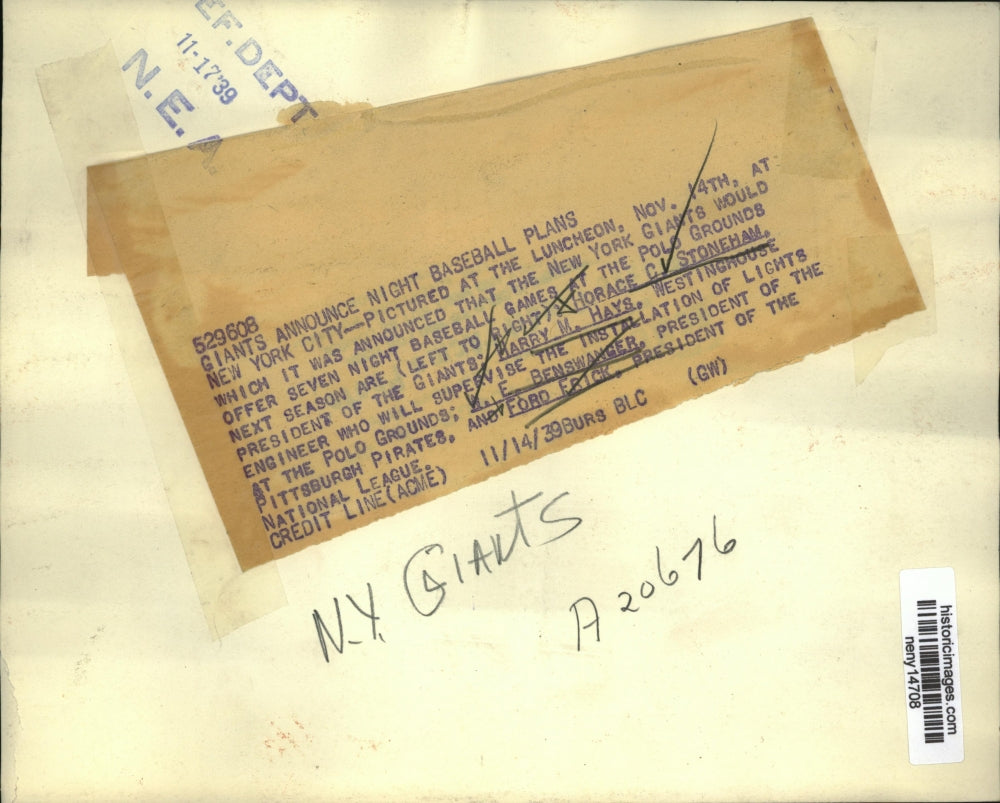 EF. DEPT
11-17'39
N. E. A.
529608
GIANTS ANNOUNCE NIGHT BASEBALL PLANS
NEW YORK CITY--PICTURED AT THE LUNCHEON, NOV. 14TH, AT
WHICH IT WAS ANNOUNCED THAT THE NEW YORK GIANTS WOULD
OFFER SEVEN NIGHT BASEBALL GAMES AT THE POLO GROUNDS
NEXT SEASON ARE (LEFT TO RIGHT): HORACE C. STONEHAM,
PRESIDENT OF THE GIANTS; HARRY M. HAYS, WESTINGHOUSE
ENGINEER WHO WILL SUPERVISE THE INSTALLATION OF LIGHTS
AT THE POLO GROUNDS; E. BENSWANGER, PRESIDENT OF THE
PITTSBURGH PIRATES, AND FORD FRICK, PRESIDENT OF THE
NATIONAL LEAGUE.
CREDIT LINE (ACME) 11/14/39BURS BLC (GW)
N.Y. GIANTS
A 20676
historicimages.com
neny14708